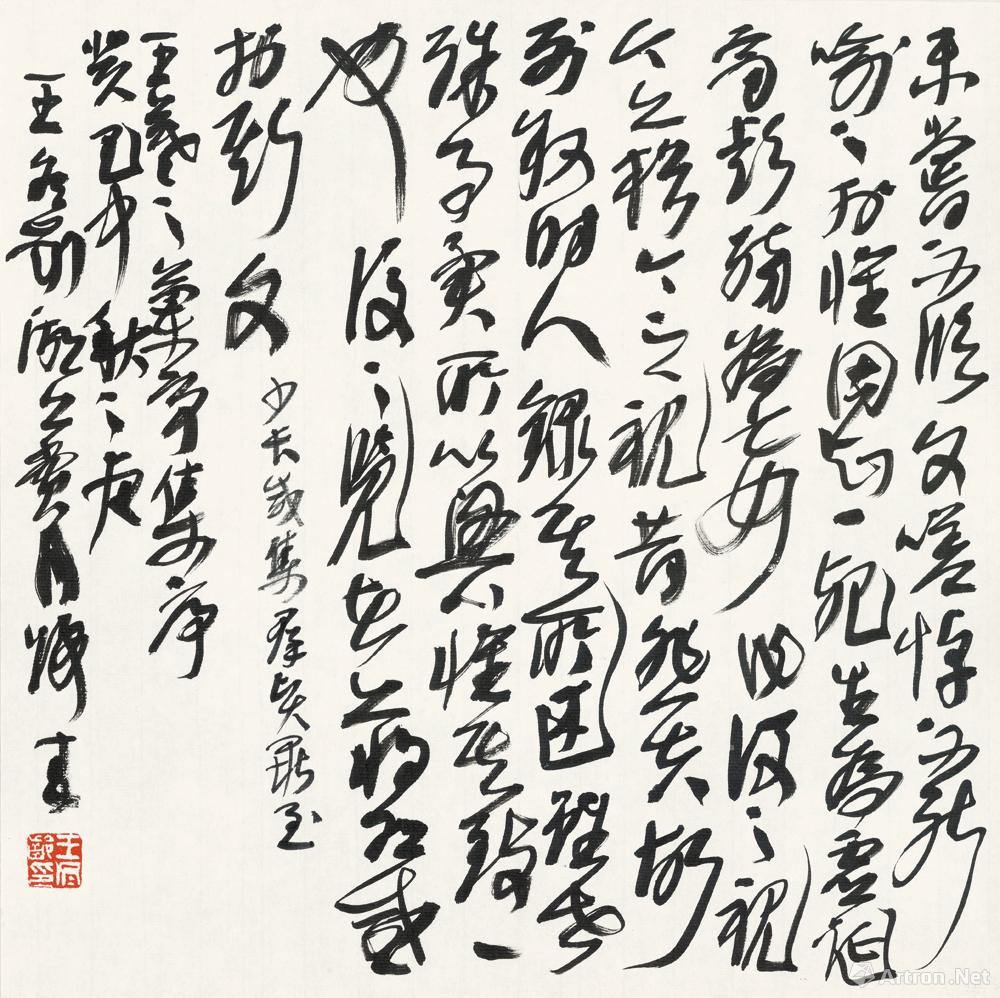 未嘗不臨文嗟悼不能
喻之於懷固知一死生為虛誕
齊彭殤為妄後之視
今亦猶今之視昔悲夫故
列叙時人錄其所述雖世
殊事異所以興懷其致一
也後之覽者亦將有感
於斯文 少長咸集群賢畢至
王羲之蘭亭集序
癸巳中秋之夜
王冬齡湖上賞月歸書
王冬齡印
Artron.Net